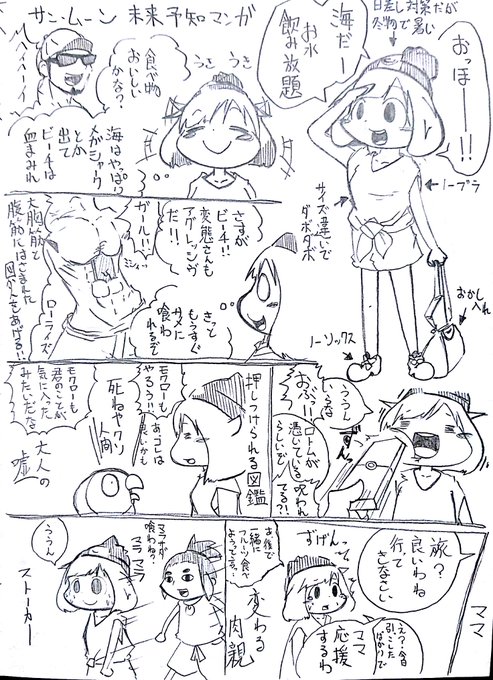 サン・ムーン 未来予知マンガ
日差し対策だが
冬物で暑い
おっほー!!
海だー
お水
飲み放題
ノーブラ
サイズ違いで
ダボダボ
おかし
入れ
ノーソックス
うき うき
食べ物
おいしい
かな?
ヘイヘーイ
海はやっぱり
メガシャーク
とか
出て
ビーチは
血まみれ
さすが
ビーチ!!
変態さんも
アグレッシヴ
だ!!
きっと
もうすぐ
サメに
喰わ
れるぞ
ガール!!
ローライズ
大胸筋と
腹筋にはさまれた
図かんをあげる!!
うぅ…
おぶぅ!!
ロトムが
憑いている
呪われ
てる?!
らしいぞ
押しつけられる図鑑
モクローも
やるろうが
死ねヤクソ
人間
モクローも
君のことが
気に入った
みたいだな
大人の
嘘
旅?
良いわね
行って
きなさい
ママ
え?今日
引っこした
ばかりで
ずげんっ
ママ
応援
するわ
変わる
肉親
お後で
一緒に
喰わね?
マラサダ
マラマラ
うぅん
ストーカー